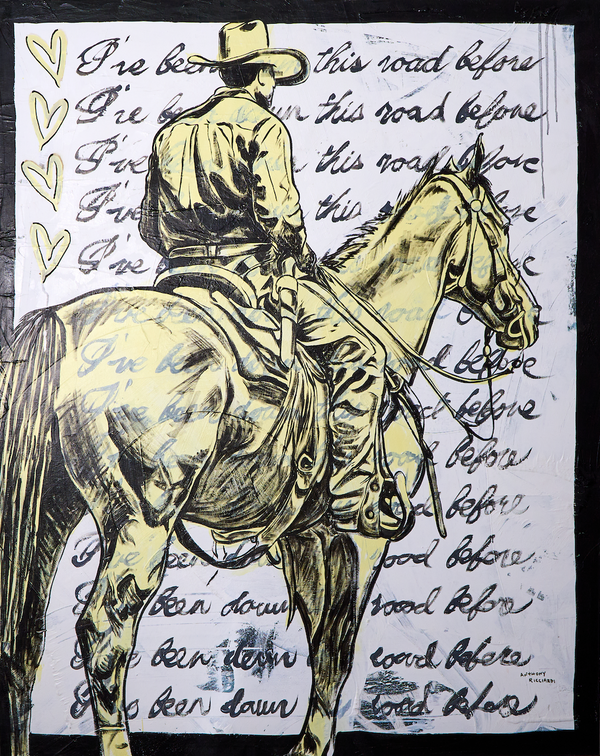 I've been this road before
I've this road before
I've this road before
I've this
I've
I've been this road before
I've been before
I've been down before
before
road before
I've been road before
been down road before
been down road before
been down road before
ANTHONY
RICCIARDI